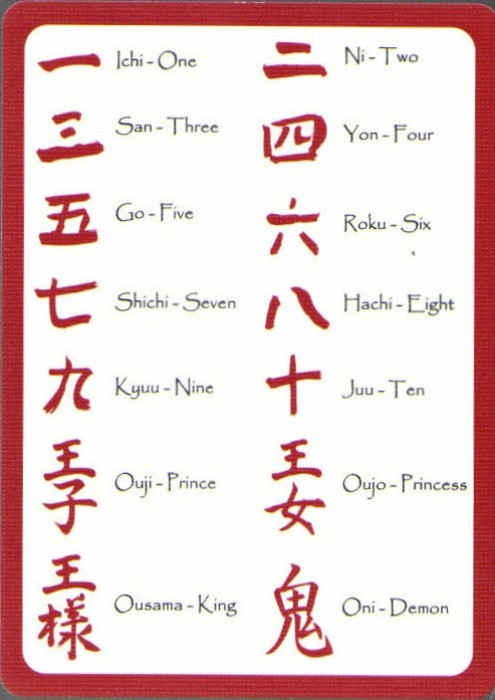 一 Ichi - One 二 Ni - Two
三 San - Three 四 Yon - Four
五 Go - Five 六 Roku - Six
七 Shichi - Seven 八 Hachi - Eight
九 Kyuu - Nine 十 Juu - Ten
王子 Ouji - Prince 王女 Oujo - Princess
王様 Ousama - King 鬼 Oni - Demon